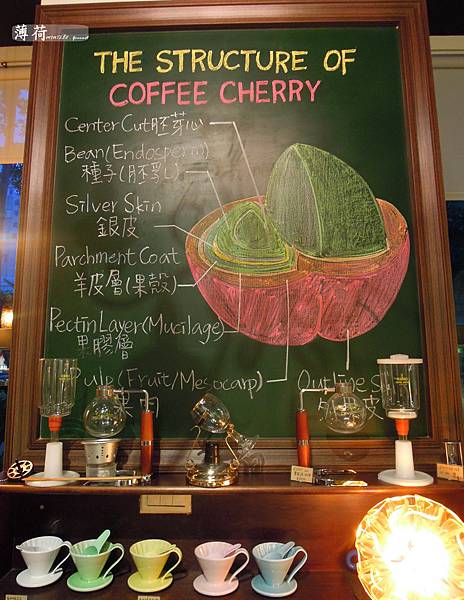 薄荷
THE STRUCTURE OF
COFFEE CHERRY
Center Cut 胚芽心
Bean (Endosperm)
種子(胚乳)
Silver Skin
銀皮
Parchment Coat
羊皮層(果殼)
Pectin Layer (Mucilage)
果膠層
Pulp (Fruit/Mesocarp)
果肉
Outline
外 皮